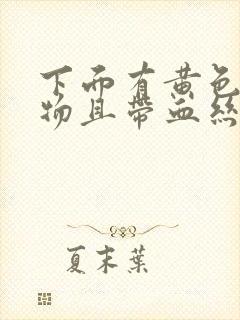 下而有黄色
物且带血丝
夏末葉